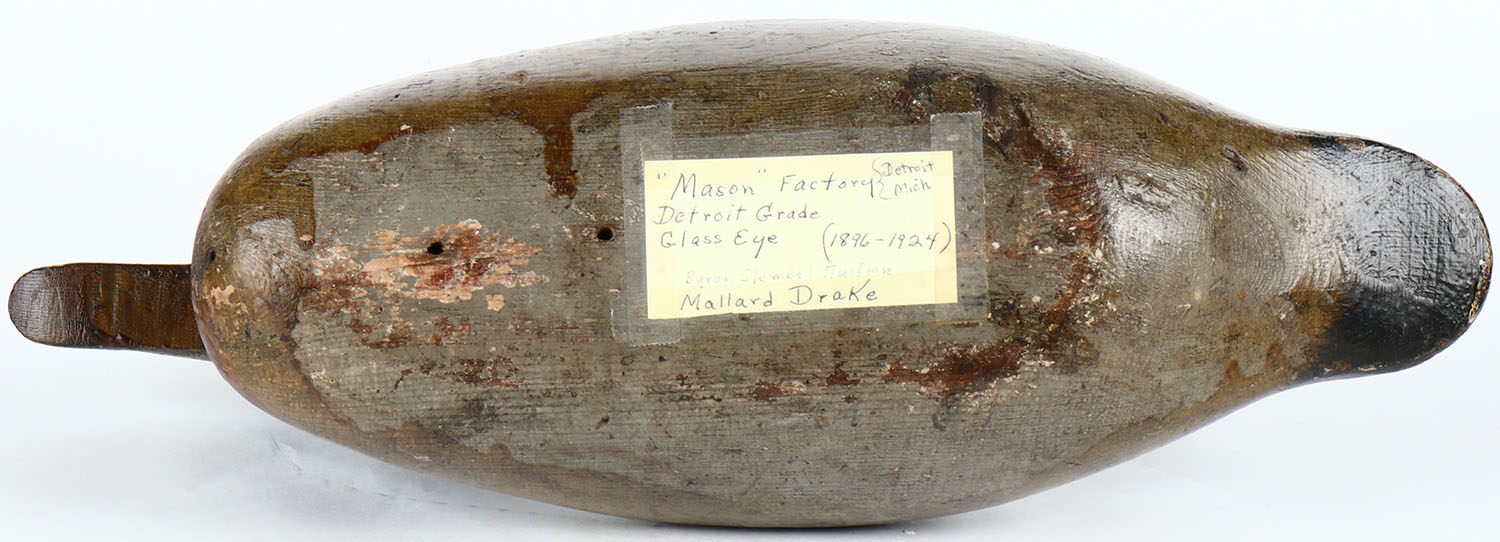 "Mason" Factory { Detroit
Mich
Detroit Grade
Glass Eye (1896-1924)
Byron Auction
Mallard Drake